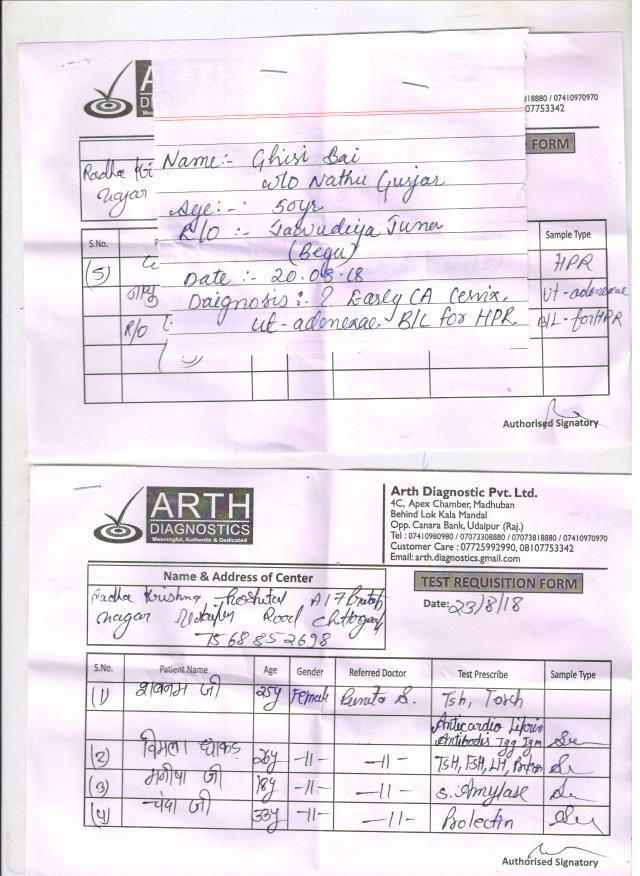 ARTH
D
Arth Diagnostic Pvt. Ltd.
818880 / 07410970970
07753342
FORM
Radha Kri
nagar
Name:- Ghisi Bai
w/o Nathu Gurjar
Age:- 50yr
R/O :-
(Begu)
Date :- 20.08.18
Daignosis:- ? Early CA Cervix.
ut-adenexae B/L for HPR
S.No.
Sample Type
(5)
HPR
नाथु
ut-adenexae
R/O
B/L-for HPR
Authorised Signatory
ARTH
DIAGNOSTICS
Meaningful, Authentic & Dedicated
Arth Diagnostic Pvt. Ltd.
4C, Apex Chamber, Madhuban
Behind Lok Kala Mandal
Opp. Canara Bank, Udaipur (Raj.)
Tel : 07410980980 / 07073308880 / 07073818880 / 07410970970
Customer Care : 07725992990, 08107753342
Email: arth.diagnostics.gmail.com
Name & Address of Center
Radha Krishna Hospital A 17 Pratap
nagar Udaipur Road Chittorgarh
75 68 85 2698
TEST REQUISITION FORM
Date: 23/8/18
S.No. Patient Name Age Gender Referred Doctor Test Prescribe Sample Type
(1) शबनम जी 25y Female Punita S. Tsh, Torch
Anticardio Liferin
Antibodis Igg Igm
(2) विमला धाकड़ 26y -11- -11- TSH, FSH, LH,
(3) मनीषा जी 18y -11- -11- S. Amylase
(4) चंदा जी 33y -11- -11- Prolectin
Authorised Signatory